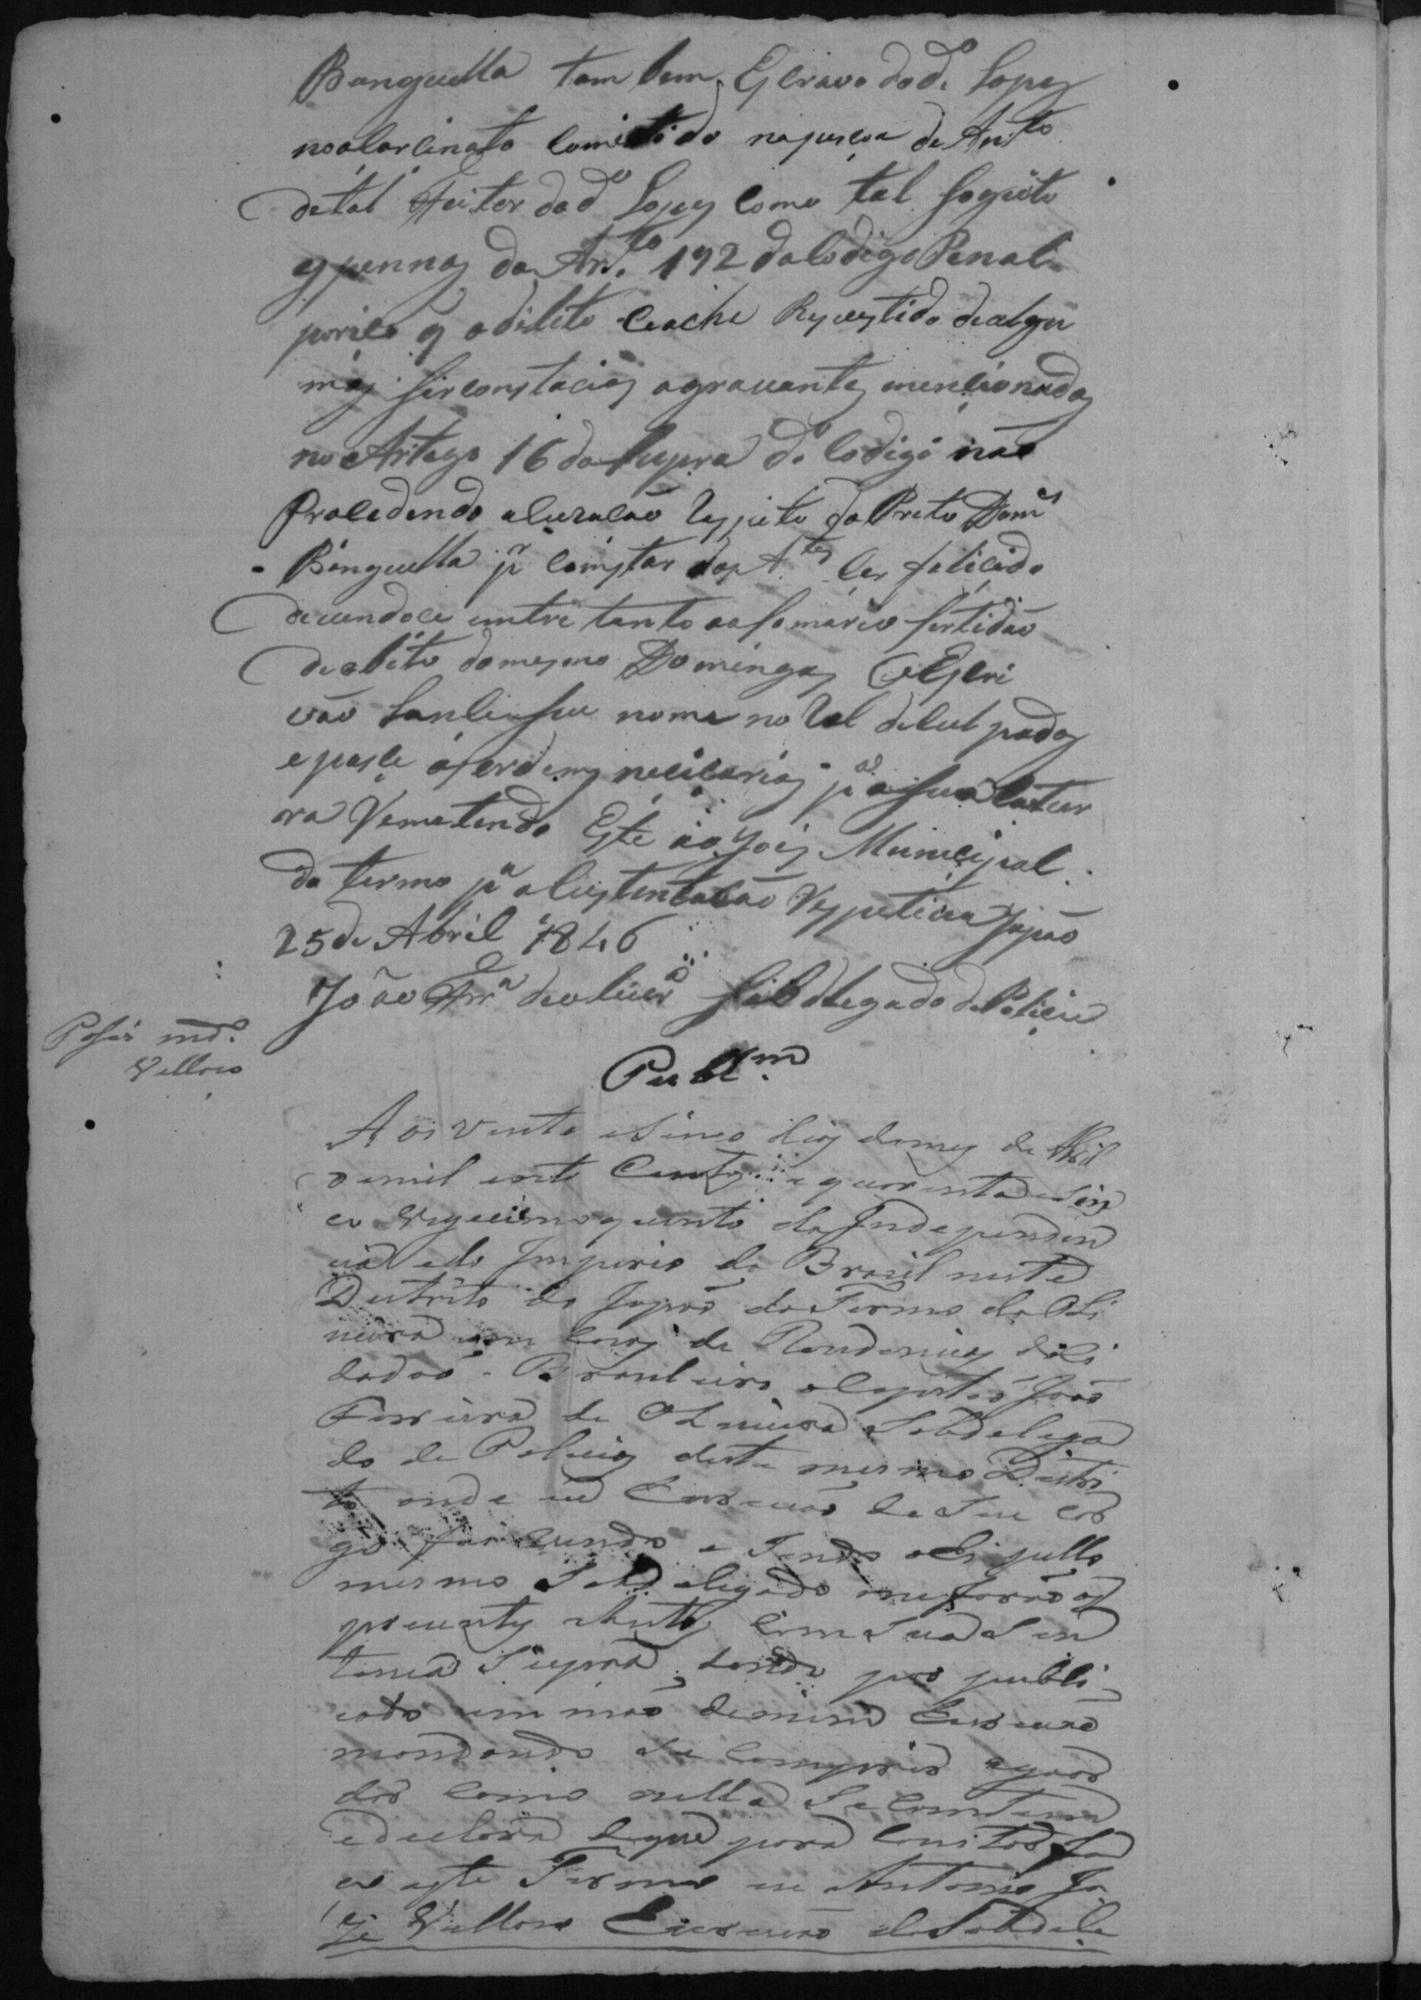 Banguella tam bem Escravo do d.º Lopes
no asacinato cometido na pesoa de Ant.to
de tal Feitor do d.º Lopes como tal sogeito
as pennas do Art.to 192 do Codigo Penal
porico q o dilito se ache Revestido de algu
mas sirconstacias agravantes mencionadas
no Artego 16 do supra d.º Codigo não
Procedendo acuzacão Respeito do Preto Dom.os
Banguella p.r comstar dos A.tes ser falicido
devendo ce entre tanto ao somario sertidão
de obito do mesmo Domingos O Escri
vão lance seu nome no Rol de Culpados
e pasce as ordens nececarias p.a a sua Catur
ra Remetendo Este ao Joiz Municipal
do termo p.a a custentacão Respetiva Japão
25 de Abril 1846
João Frr.a de oliver.a Sub delegado de Policia
Pasei md.o
Vellozo
Publ.m
Aos vinte e Sinco dias do mes de Abril
de mil oito Centos e quarenta e Seis
vigecimo quinto da Independen
cia e do Imperio do Brazil neste
Distrito do Japão do Termo da Oli
veira em Cazas de Rendencias do Ci
dadão Brazileiro o Capitão João
Ferreira de Oliveira Sobdelega
do de Policia deste mesmo Distri
to onde eu Escrivão de Seu car
go fui vindo e Sendo ahi pello
mesmo Sobdelegado me forão os
prezentes Autos Com a Sua Sen
tenca Supra dando por publi
cado em mão de mim Escrivão
mandando Se Compriss e goar
dar como nella Se Comtem
e declara e que para Constar fa
co este Termo eu Antonio Jo
ze Vellozo Escrivão da Sobdele